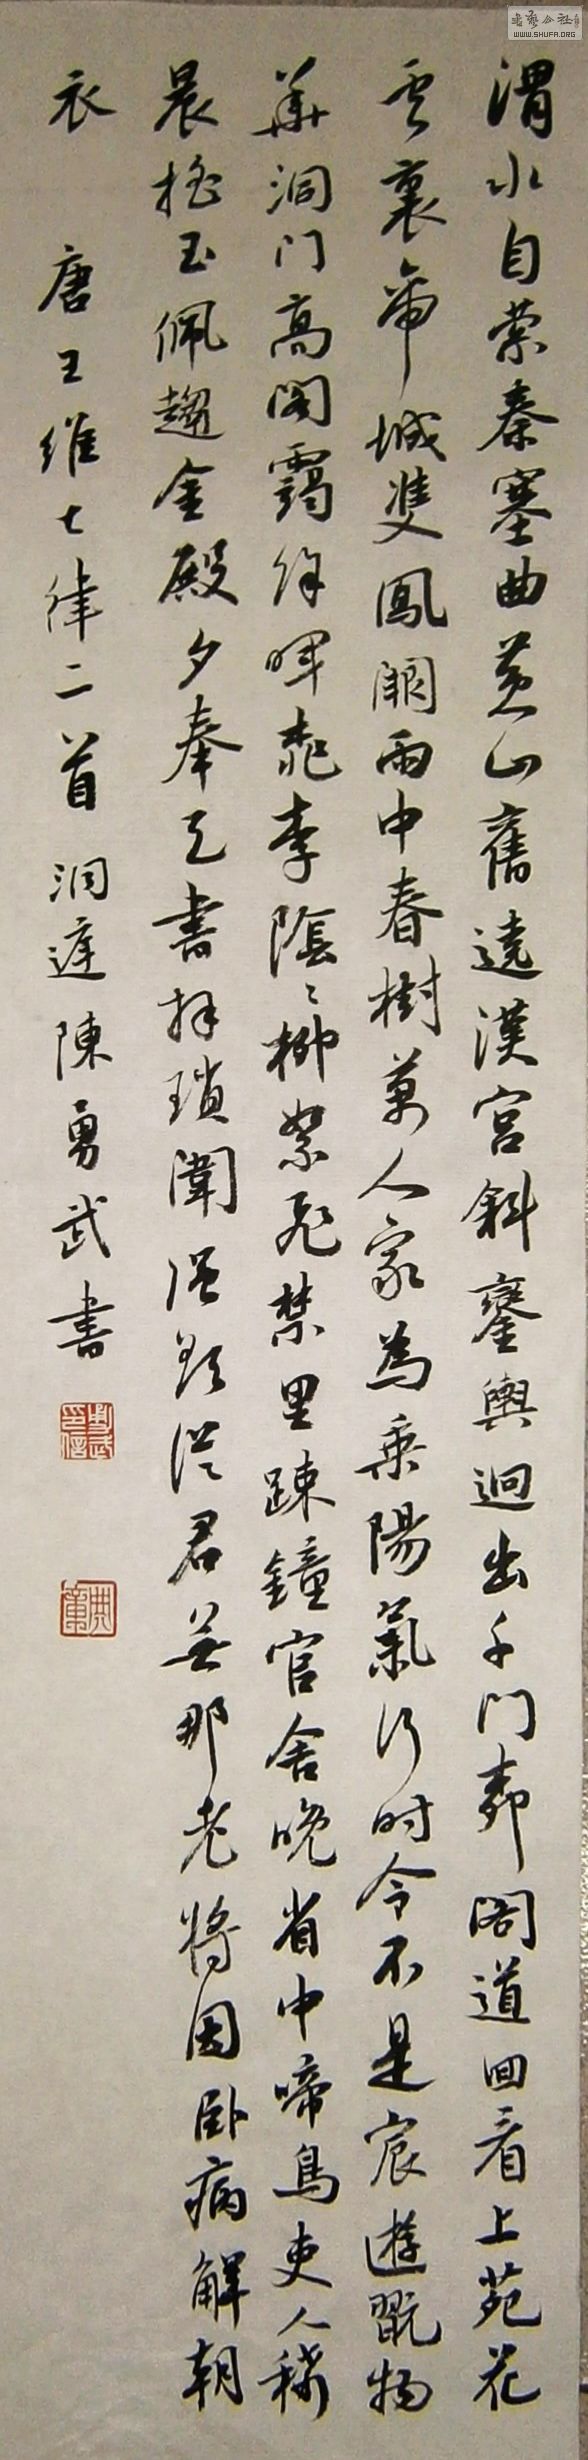 渭水自縈秦塞曲黄山舊遶漢宫斜鑾輿迥出千門柳閣道回看上苑花
雲裏帝城雙鳳闕雨中春樹萬人家為乘陽氣行时令不是宸遊翫物
華洞門高閣靄餘暉桃李陰〻柳絮飛禁里疎鐘官舍晚省中啼鳥吏人稀
晨摇玉佩趨金殿夕奉天書拜瑣闈强欲從君無那老將因卧病解朝
衣 唐王維七律二首 洞庭陳勇武書
勇武印信
書藝公社
WWW.SHUFA.ORG